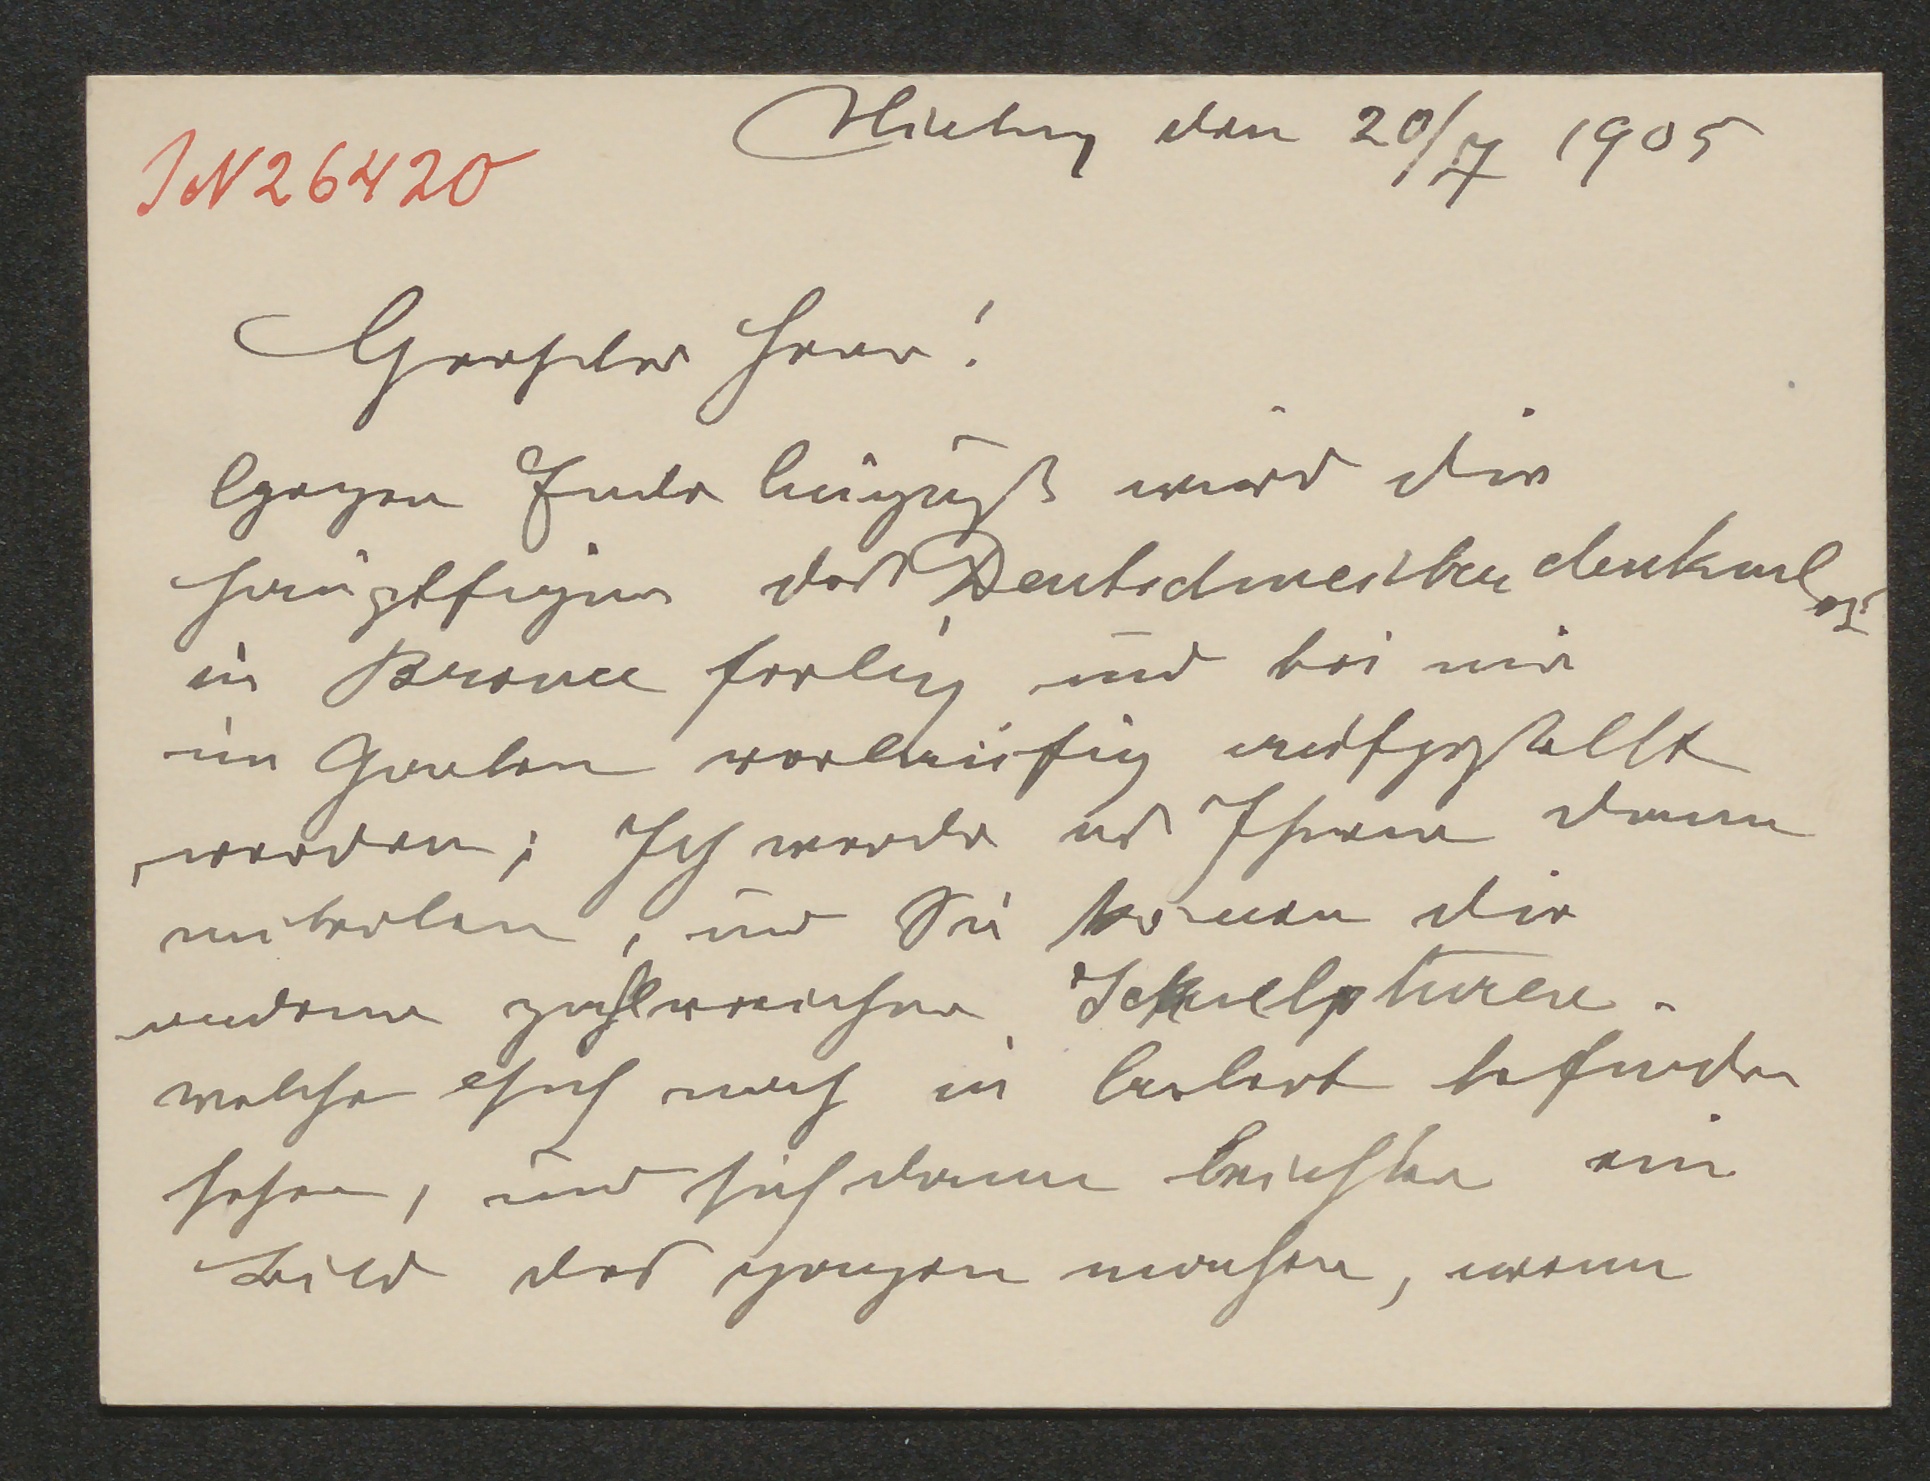 IN 26420
Hietzing den 20/7 1905
Geehrter Herr!
Gegen Ende August wird die
Hauptfigur des Deutschmeisterdenkmales
in Bronce fertig und bei mir
im Garten vorläufig aufgestellt
werden; Ich werde es Ihnen dann
mitteilen, und Sie können die
anderen zahlreichen Sckulpturen.
welche sich noch in Arbeit befinden
sehen, und sich dann leichter ein
Bild des ganzen machen, wenn